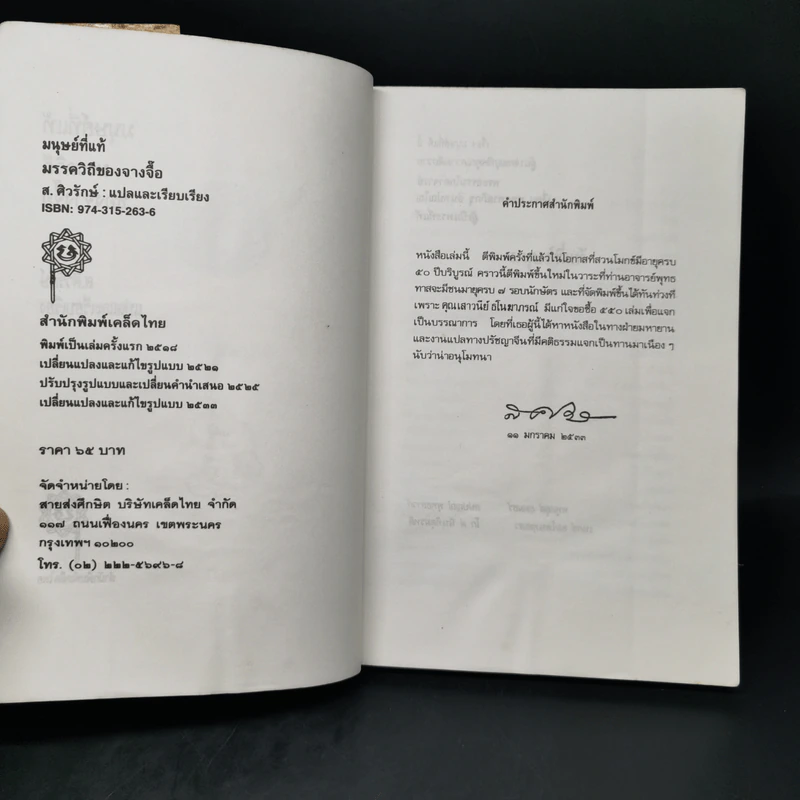 มนุษย์ที่แท้
มรรควิถีของจางจื๊อ
ส. ศิวรักษ์ : แปลและเรียบเรียง
ISBN: 974-315-263-6
สำนักพิมพ์เคล็ดไทย
พิมพ์เป็นเล่มครั้งแรก ๒๕๑๘
เปลี่ยนแปลงและแก้ไขรูปแบบ ๒๕๒๑
ปรับปรุงรูปแบบและเปลี่ยนคำนำเสนอ ๒๕๒๕
เปลี่ยนแปลงและแก้ไขรูปแบบ ๒๕๓๓
ราคา ๖๕ บาท
จัดจำหน่ายโดย :
สายส่งศึกษิต บริษัทเคล็ดไทย จำกัด
๑๑๗ ถนนเฟื่องนคร เขตพระนคร
กรุงเทพฯ ๑๐๒๐๐
โทร. (๐๒) ๒๒๒-๕๖๙๖-๘
คำประกาศสำนักพิมพ์
หนังสือเล่มนี้ ตีพิมพ์ครั้งที่แล้วในโอกาสที่สวนโมกข์มีอายุครบ
๕๐ ปีบริบูรณ์ คราวนี้ตีพิมพ์ขึ้นใหม่ในวาระที่ท่านอาจารย์พุทธ
ทาสจะมีชนมายุครบ ๗ รอบนักษัตร และที่จัดพิมพ์ขึ้นได้ทันท่วงที
เพราะ คุณเสาวนีย์ ธโนฆาภรณ์ มีแก่ใจขอซื้อ ๕๕๐ เล่มเพื่อแจก
เป็นบรรณาการ โดยที่เธอผู้นี้ได้หาหนังสือในทางฝ่ายมหายาน
และงานแปลทางปรัชญาจีนที่มีคติธรรมแจกเป็นทานมาเนือง ๆ
นับว่าน่าอนุโมทนา
๑๑ มกราคม ๒๕๓๓